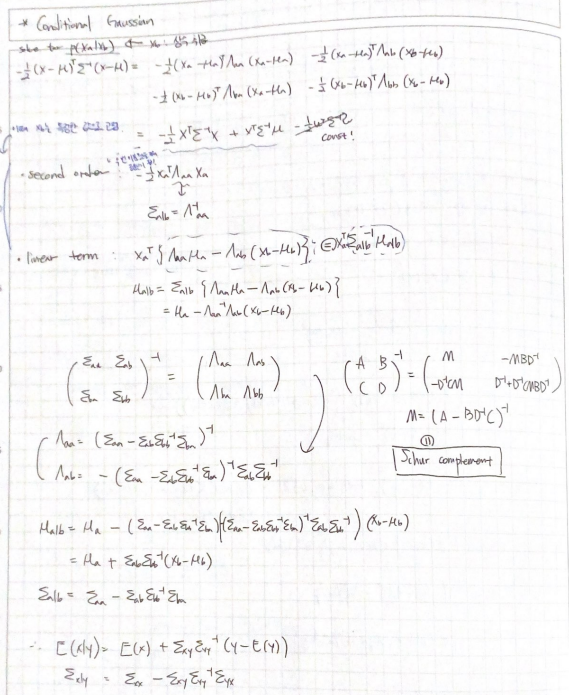 * Conditional Gaussian
p(xa|xb) ← xb :
-1/2 (x-μ)ᵀ Σ⁻¹ (x-μ) = -1/2 (xa-μa)ᵀ Λaa (xa-μa) -1/2 (xa-μa)ᵀ Λab (xb-μb)
-1/2 (xb-μb)ᵀ Λba (xa-μa) -1/2 (xb-μb)ᵀ Λbb (xb-μb)
= -1/2 xᵀΣ⁻¹x + xᵀΣ⁻¹μ
const!
• second order : -1/2 xaᵀ Λaa xa
Σa|b = Λ⁻¹aa
• linear term : xaᵀ { Λaa μa - Λab (xb-μb) } ; ⊜ xaᵀ Σa|b⁻¹ μa|b
μa|b = Σa|b { Λaa μa - Λab (xb-μb) }
= μa - Λaa⁻¹ Λab (xb-μb)
( Σaa Σab ; Σba Σbb )⁻¹ = ( Λaa Λab ; Λba Λbb ) ( A B ; C D )⁻¹ = ( M -MBD⁻¹ ; -D⁻¹CM D⁻¹+D⁻¹CMBD⁻¹ )
M = (A - BD⁻¹C)⁻¹
Λaa = (Σaa - Σab Σbb⁻¹ Σba)⁻¹
Λab = - (Σaa - Σab Σbb⁻¹ Σba)⁻¹ Σab Σbb⁻¹
Schur complement
μa|b = μa - (Σaa - Σab Σbb⁻¹ Σba) (-(Σaa - Σab Σbb⁻¹ Σba)⁻¹ Σab Σbb⁻¹) (xb-μb)
= μa + Σab Σbb⁻¹ (xb-μb)
Σa|b = Σaa - Σab Σbb⁻¹ Σba
∴ E(x|y) = E(x) + Σxy Σyy⁻¹ (y - E(y))
Σx|y = Σxx - Σxy Σyy⁻¹ Σyx